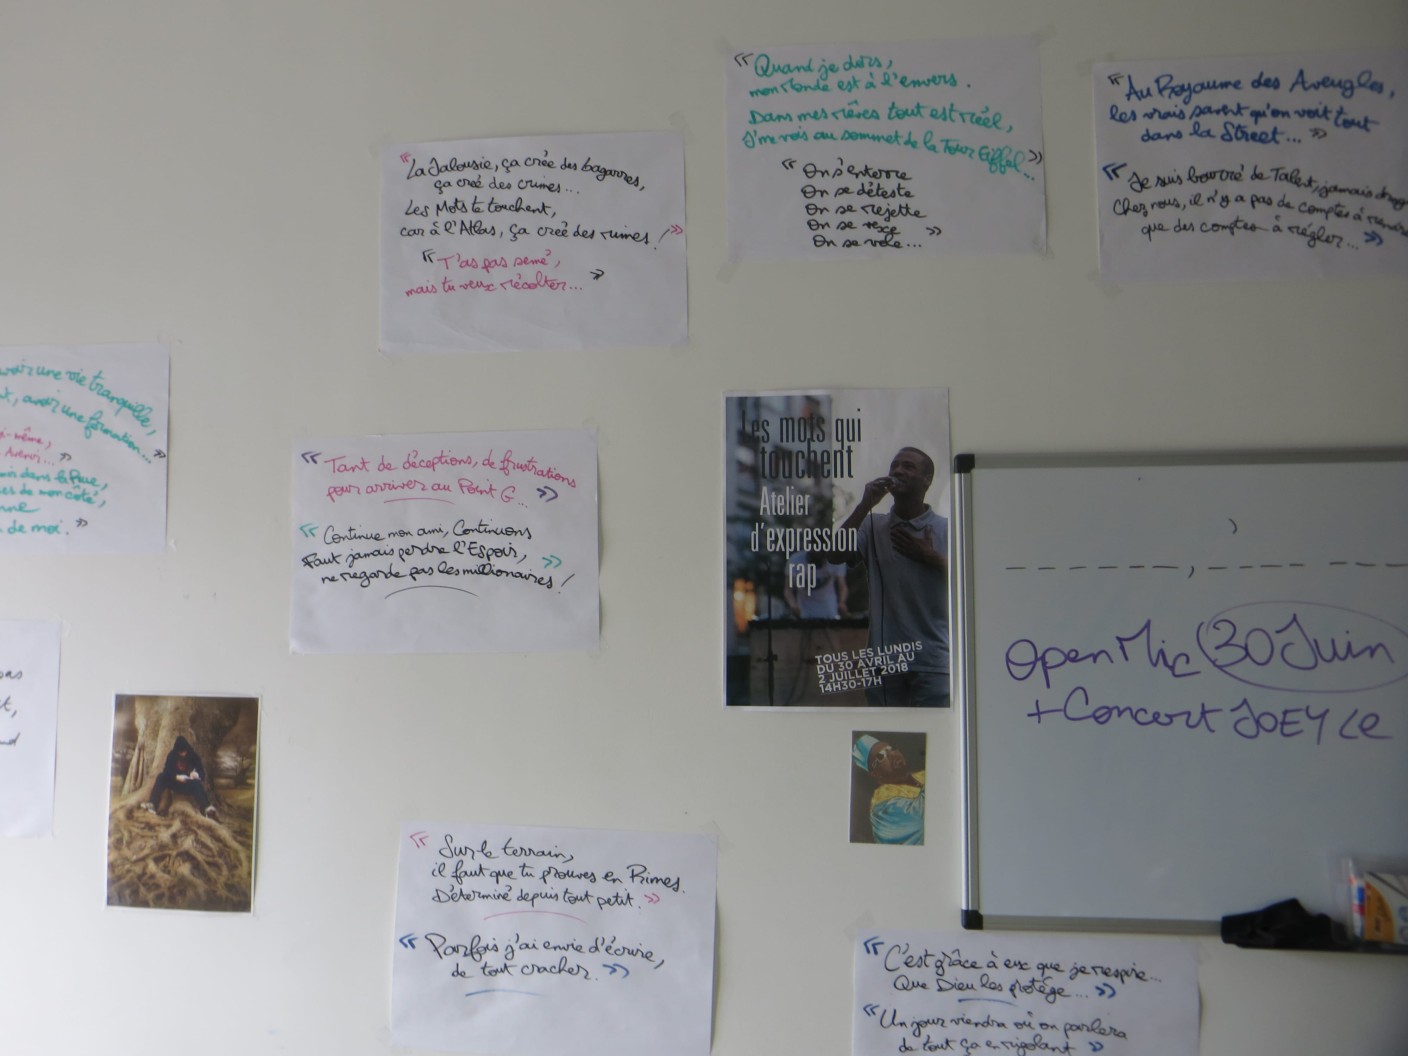 « Quand je dors,
mon monde est à l'envers.
Dans mes rêves tout est réel,
J'me vois au sommet de la Tour Eiffel... »
« On s'enterre
On se déteste
On se rejette
On se
On se vole... »
« Au Royaume des Aveugles,
les vrais savent qu'on voit tout
dans la Street... »
« Je suis bourré de Talent, jamais
Chez nous, il n'y a pas de comptes à rendre
que des comptes à régler... »
« La Jalousie, ça crée des bagarres,
ça crée des crimes...
Les Mots te touchent,
car à l'Atlas, ça crée des rimes ! »
« T'as pas semé,
mais tu veux récolter... »
une vie tranquille,
avoir une formation... »
-même,
»
dans la Rue,
de mon coté,
de moi. »
« Tant de déceptions, de frustrations
pour arriver au Point G... »
« Continue mon ami, Continuons
Faut jamais perdre l'Espoir,
ne regarde pas les millionaires ! »
Les mots qui
touchent
Atelier
d'expression
rap
TOUS LES LUNDIS
DU 30 AVRIL AU
2 JUILLET 2018
14H30-17H
Open Mic 30 Juin
+ Concert JOEY Le
« Sur le terrain,
il faut que tu prouves en Rimes.
Déterminé depuis tout petit. »
« Parfois j'ai envie d'écrire,
de tout cracher. »
« C'est grâce à eux que je respire...
Que Dieu les protège... »
« Un jour viendra où on parlera
de tout ça en rigolant »